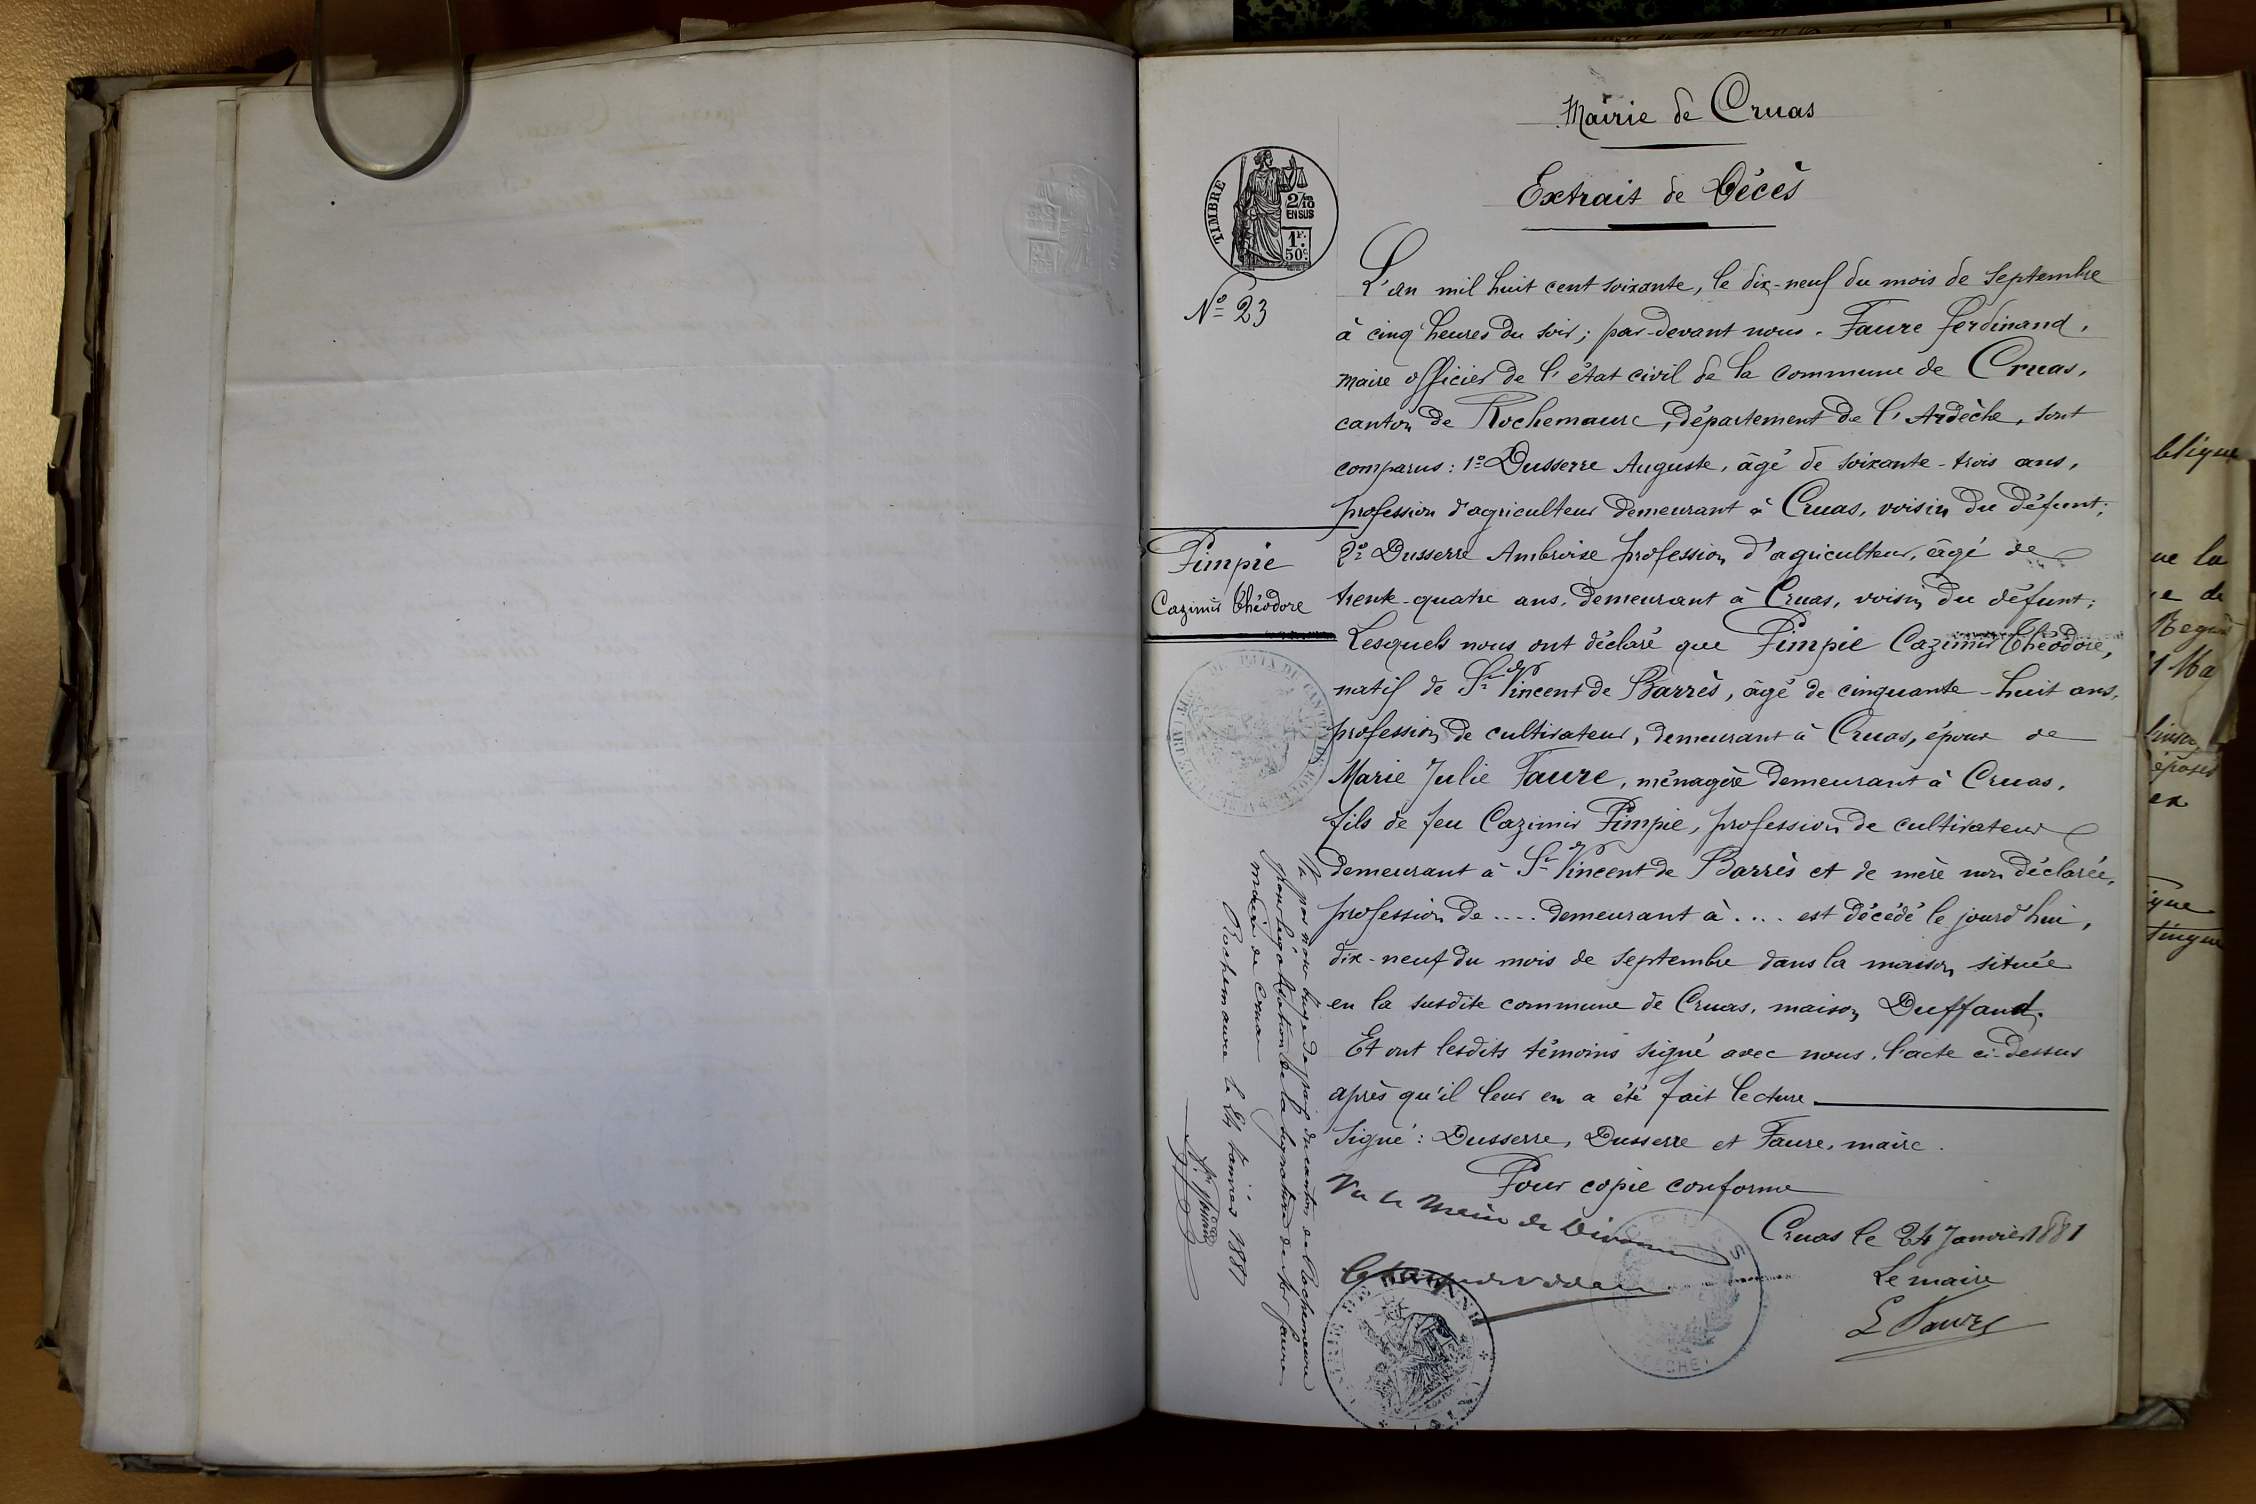 Mairie de Cruas
Extrait de Décès
TIMBRE
2/10
EN SUS
1F.
50c.
Nº 23
L'an mil huit cent soixante, le dix-neuf du mois de Septembre
à cinq heures du soir; par-devant nous. Faure Ferdinand,
maire officier de l'état civil de la commune de Cruas,
canton de Rochemaure, département de l'Ardèche, sont
comparus: 1º Dusserre Auguste, âgé de soixante-trois ans,
profession d'agriculteur demeurant à Cruas, voisin du défunt;
Pimpie
Cazimir Théodore
2º Dusserre Ambroise profession d'agriculteur, âgé de
trente-quatre ans, demeurant à Cruas, voisin du défunt;
Lesquels nous ont déclaré que Pimpie Cazimir Théodore,
natif de St Vincent de Barrès, âgé de cinquante-huit ans,
profession de cultivateur, demeurant à Cruas, époux de
Marie Julie Faure, ménagère demeurant à Cruas,
fils de feu Cazimir Pimpie, profession de cultivateur
demeurant à St Vincent de Barrès et de mère non déclarée,
profession de .... demeurant à .... est décédé le jourd'hui,
dix-neuf du mois de Septembre dans la maison située
en la susdite commune de Cruas, maison Duffaud.
Et ont lesdits témoins signé avec nous, l'acte ci-dessus
après qu'il leur en a été fait lecture.
Signé: Dusserre, Dusserre et Faure, maire.
Pour copie conforme
Cruas le 24 Janvier 1881
Le maire
L Faure
Vu par nous juge de paix du canton de Rochemaure
pour légalisation de la signature de Mr Faure
maire de Cruas
Rochemaure le 24 Janvier 1881
Vu le Maire de
blique
ue la
e de